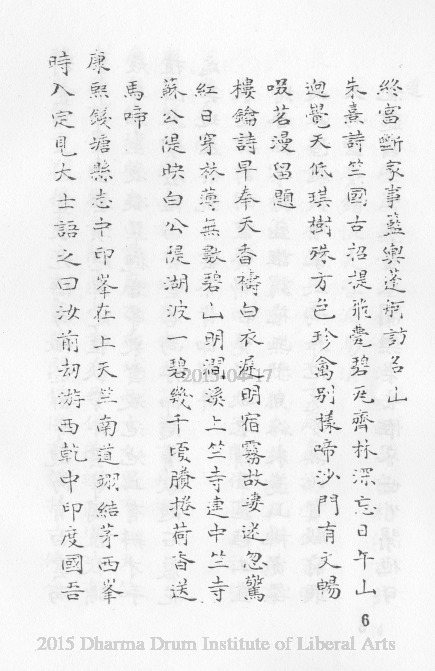 終當斷家事藍輿蓬訪名山
朱熹詩竺國古招提飛甍碧瓦齊林深忘日午山
迥覺天低琪樹殊方色珍禽別樣啼沙門有文暢
啜茗漫留題
樓鑰詩早奉天香禱白衣遲明宿霧故淒迷忽驚
紅日穿林薄無數碧山明澗溪上竺寺連中竺寺
蘇公隄映白公隄湖波一碧幾千頃賸捲荷香送
馬啼
康熙錢塘縣志中印峯在上天竺南道翊結茅西峯
時入定見大士語之曰汝前劫游西乾中印度國吾
6
2015/04/17
2015 Dharma Drum Institute of Liberal Arts